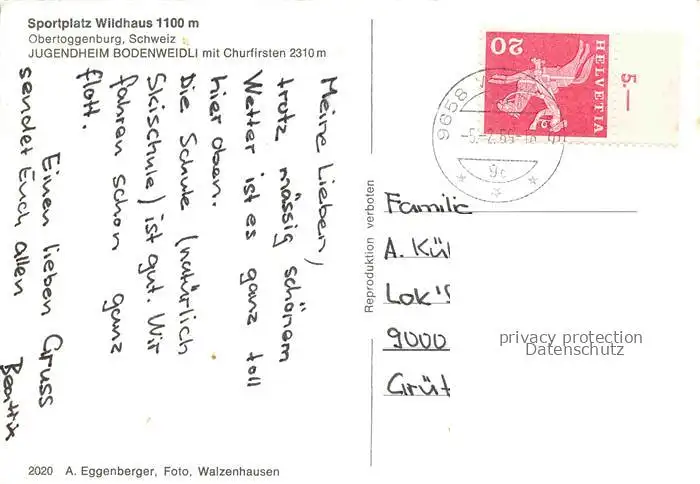 Sportplatz Wildhaus 1100 m
Obertoggenburg, Schweiz
JUGENDHEIM BODENWEIDLI mit Churfirsten 2310 m
Meine Lieben,
trotz mässig schönem
Wetter ist es ganz toll
hier oben.
Die Schule (natürlich
Skischule) ist gut. Wir
fahren schon ganz
flott.
Einen lieben Gruss
sendet Euch allen
Beattix
2020 A. Eggenberger, Foto, Walzenhausen
Reproduktion verboten
HELVETIA
20
5.—
9658
9c
Familie
A. Kül
Lok's
9000
Grüt
privacy protection
Datenschutz